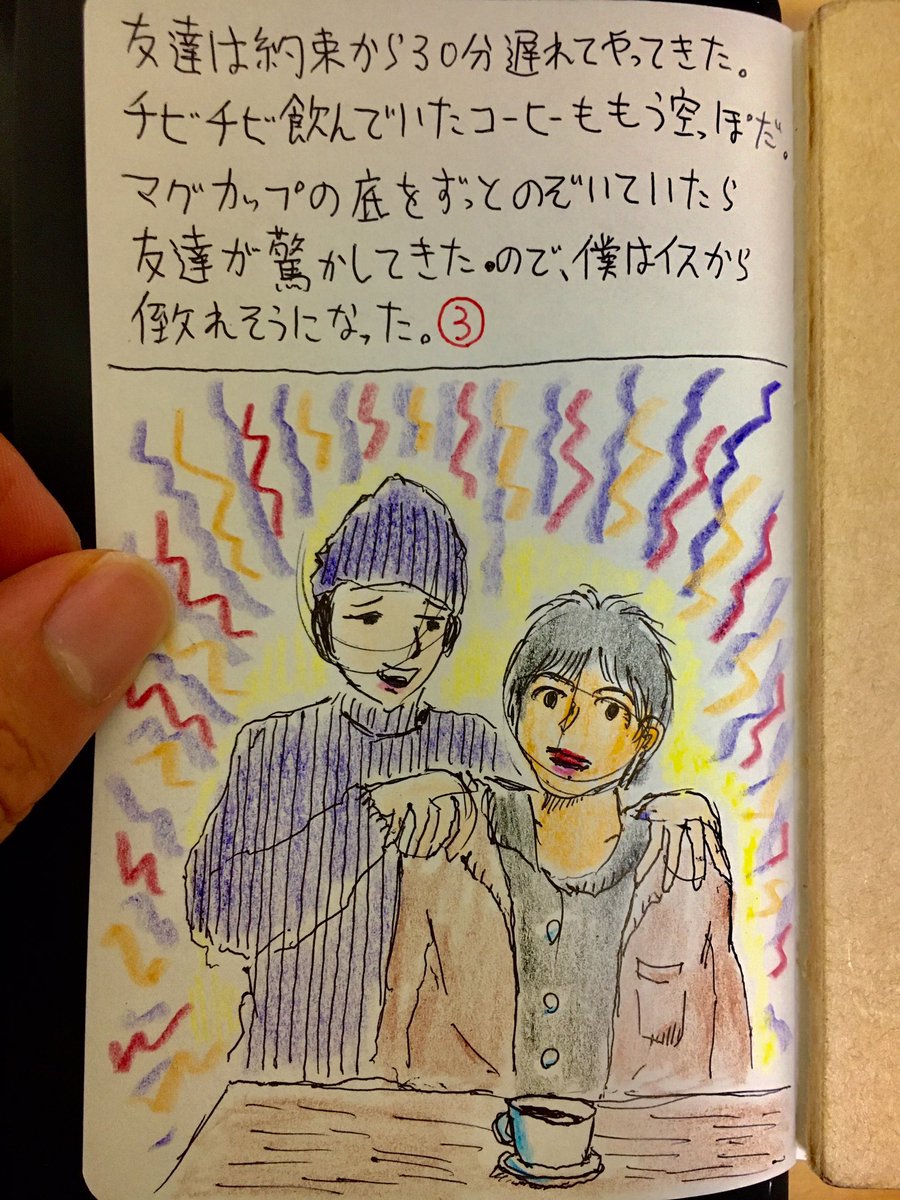 友達は約束から30分遅れてやってきた。
チビチビ飲んでいたコーヒーももう空っぽだ。
マグカップの底をずっとのぞいていたら
友達が驚かしてきた。ので、僕はイスから
倒れそうになった。③